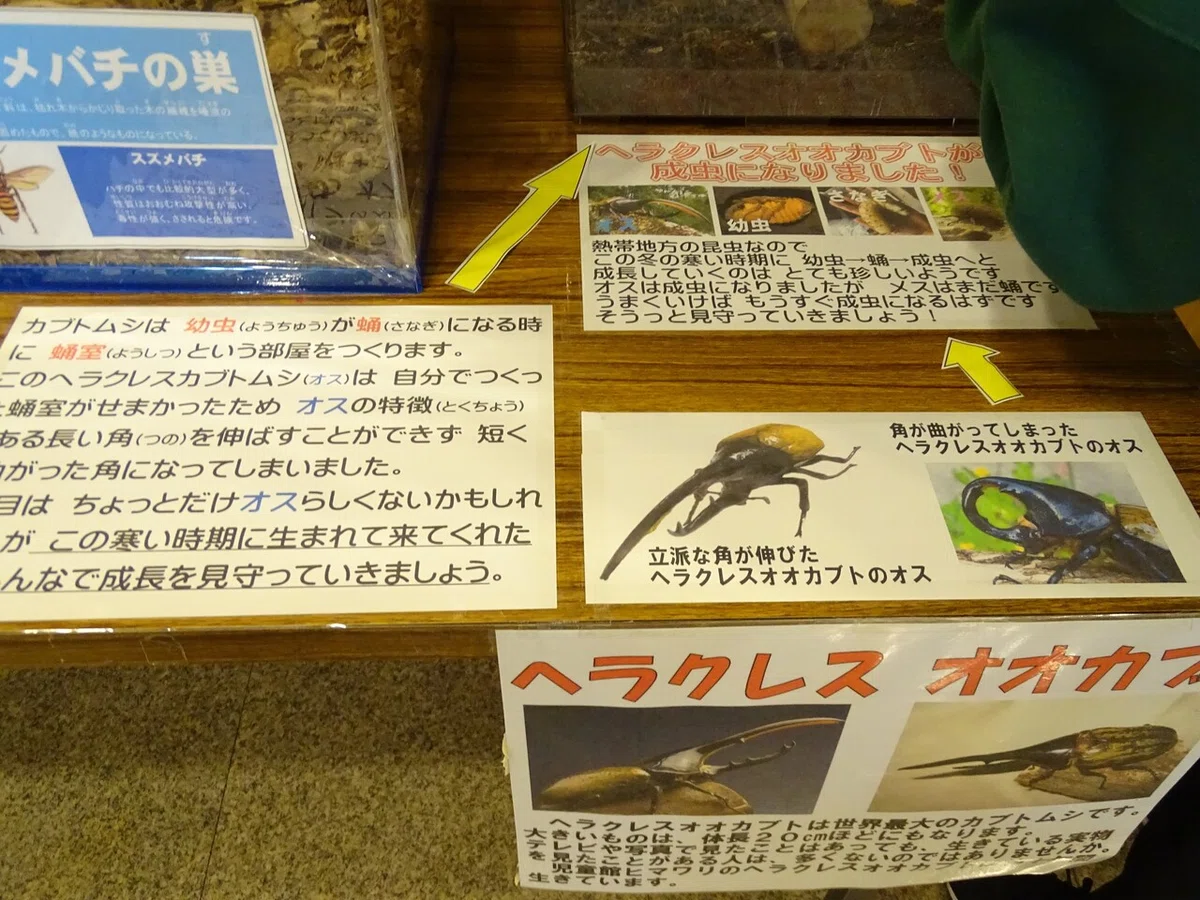 メバチの巣
す
スズメバチ
ハチの中でも比較的大型が多く、
性質はおおむね攻撃性が高い。
毒性が強く、さされると危険です。
ヘラクレスオオカブトが
成虫になりました！
オス
幼虫
さなぎ
熱帯地方の昆虫なので
この冬の寒い時期に 幼虫→蛹→成虫へと
成長していくのは とても珍しいようです
オスは成虫になりましたが メスはまだ蛹です
うまくいけば もうすぐ成虫になるはずです
そうっと見守っていきましょう！
カブトムシは 幼虫(ようちゅう)が蛹(さなぎ)になる時
に 蛹室(ようしつ)という部屋をつくります。
このヘラクレスカブトムシ(オス)は 自分でつくっ
た蛹室がせまかったため オスの特徴(とくちょう)
ある長い角(つの)を伸ばすことができず 短く
曲がった角になってしまいました。
目は ちょっとだけオスらしくないかもしれ
が この寒い時期に生まれて来てくれた
んなで成長を見守っていきましょう。
角が曲がってしまった
ヘラクレスオオカブトのオス
立派な角が伸びた
ヘラクレスオオカブトのオス
ヘラクレス オオカブ
ヘラクレスオオカブトは世界最大のカブトムシです。
大きいものは、体長２０cmほどにもなります。
テレビや写真で見たことはあっても、生きている実物
を見たことがある人は、多くないのではありませんか。
児童館ヒマワリのヘラクレスオオカブ
生きています。